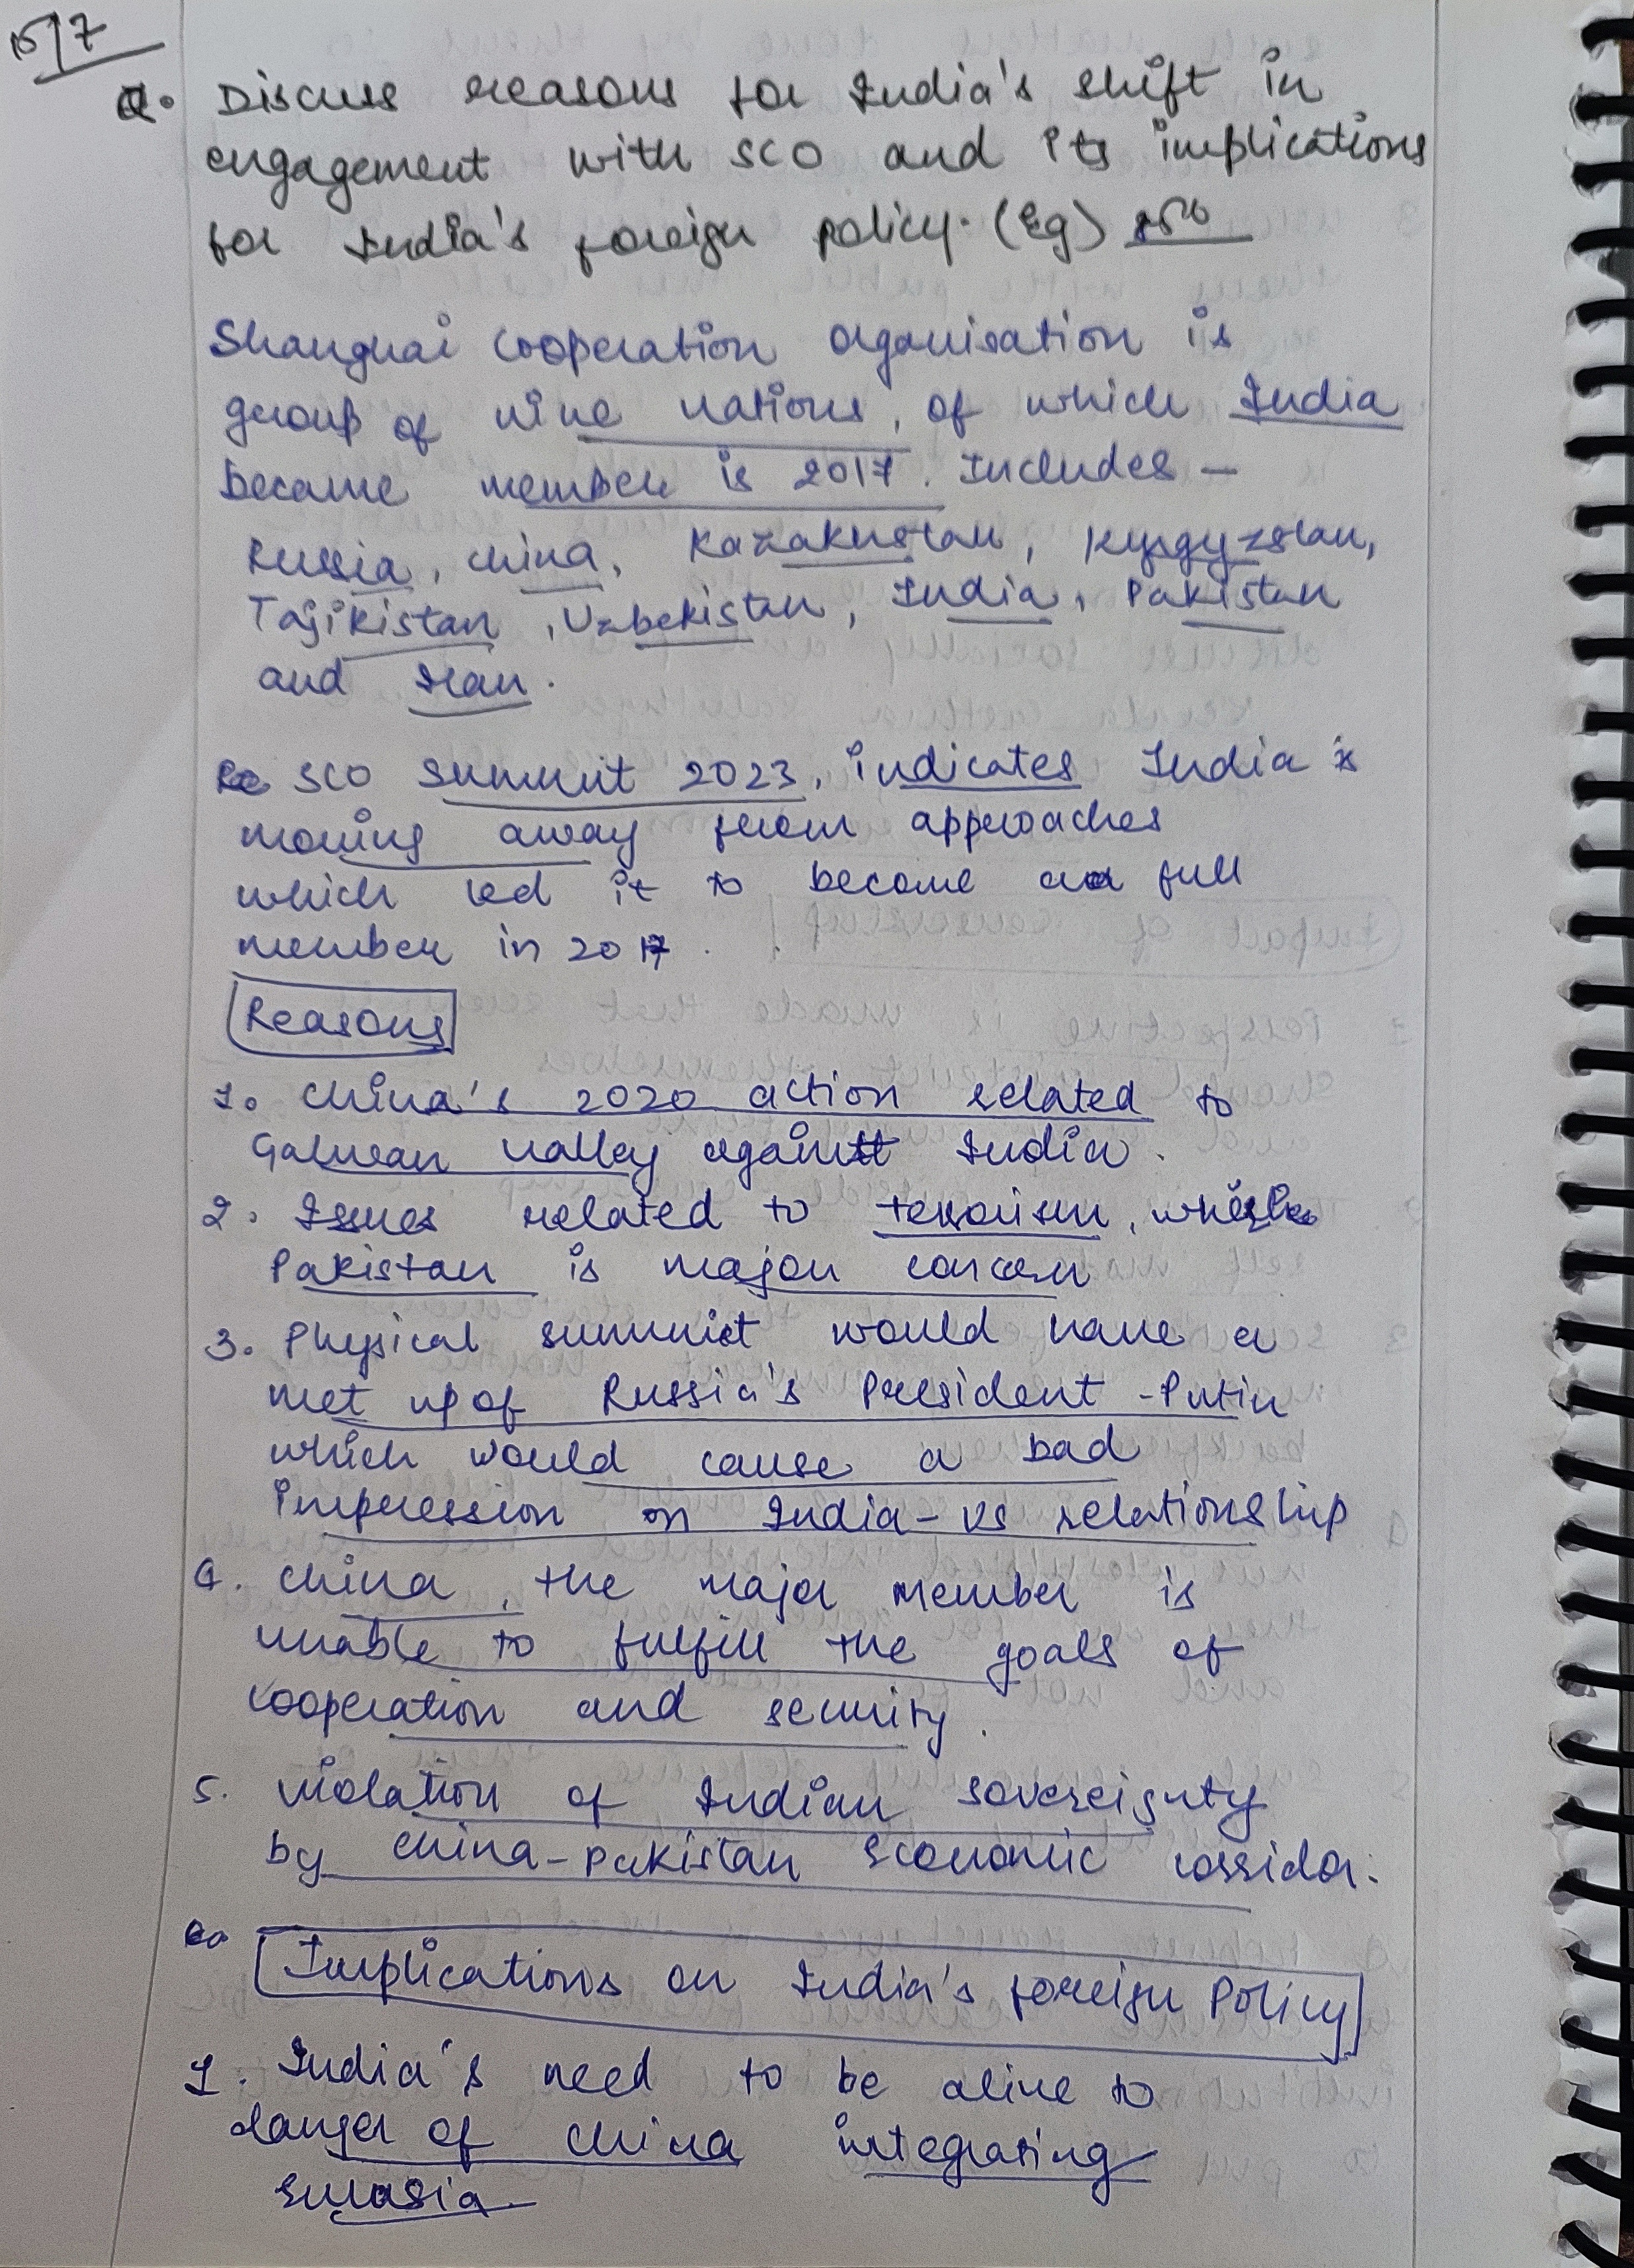 15/7
Q. Discuss reasons for India's shift in
engagement with SCO and its implications
for India's foreign policy. (Eg) 250
Shanghai Cooperation Organisation is
group of nine nations, of which India
became member is 2017. Includes -
Russia, China, Kazakhstan, Kyrgyzstan,
Tajikistan, Uzbekistan, India, Pakistan
and Iran.
SCO Summit 2023, indicates India is
moving away from approaches
which led it to become a full
member in 2017.
Reasons
1. China's 2020 action related to
Galwan valley against India.
2. Issues related to terrorism, where
Pakistan is major concern
3. Physical summit would have a
met up of Russia's President - Putin
which would cause a bad
impression on India - US relationship
4. China, the major member is
unable to fulfill the goals of
cooperation and security.
5. Violation of Indian sovereignty
by China-Pakistan Economic corridor.
Implications on India's foreign Policy
1. India's need to be alive to
danger of China integrating
Eurasia